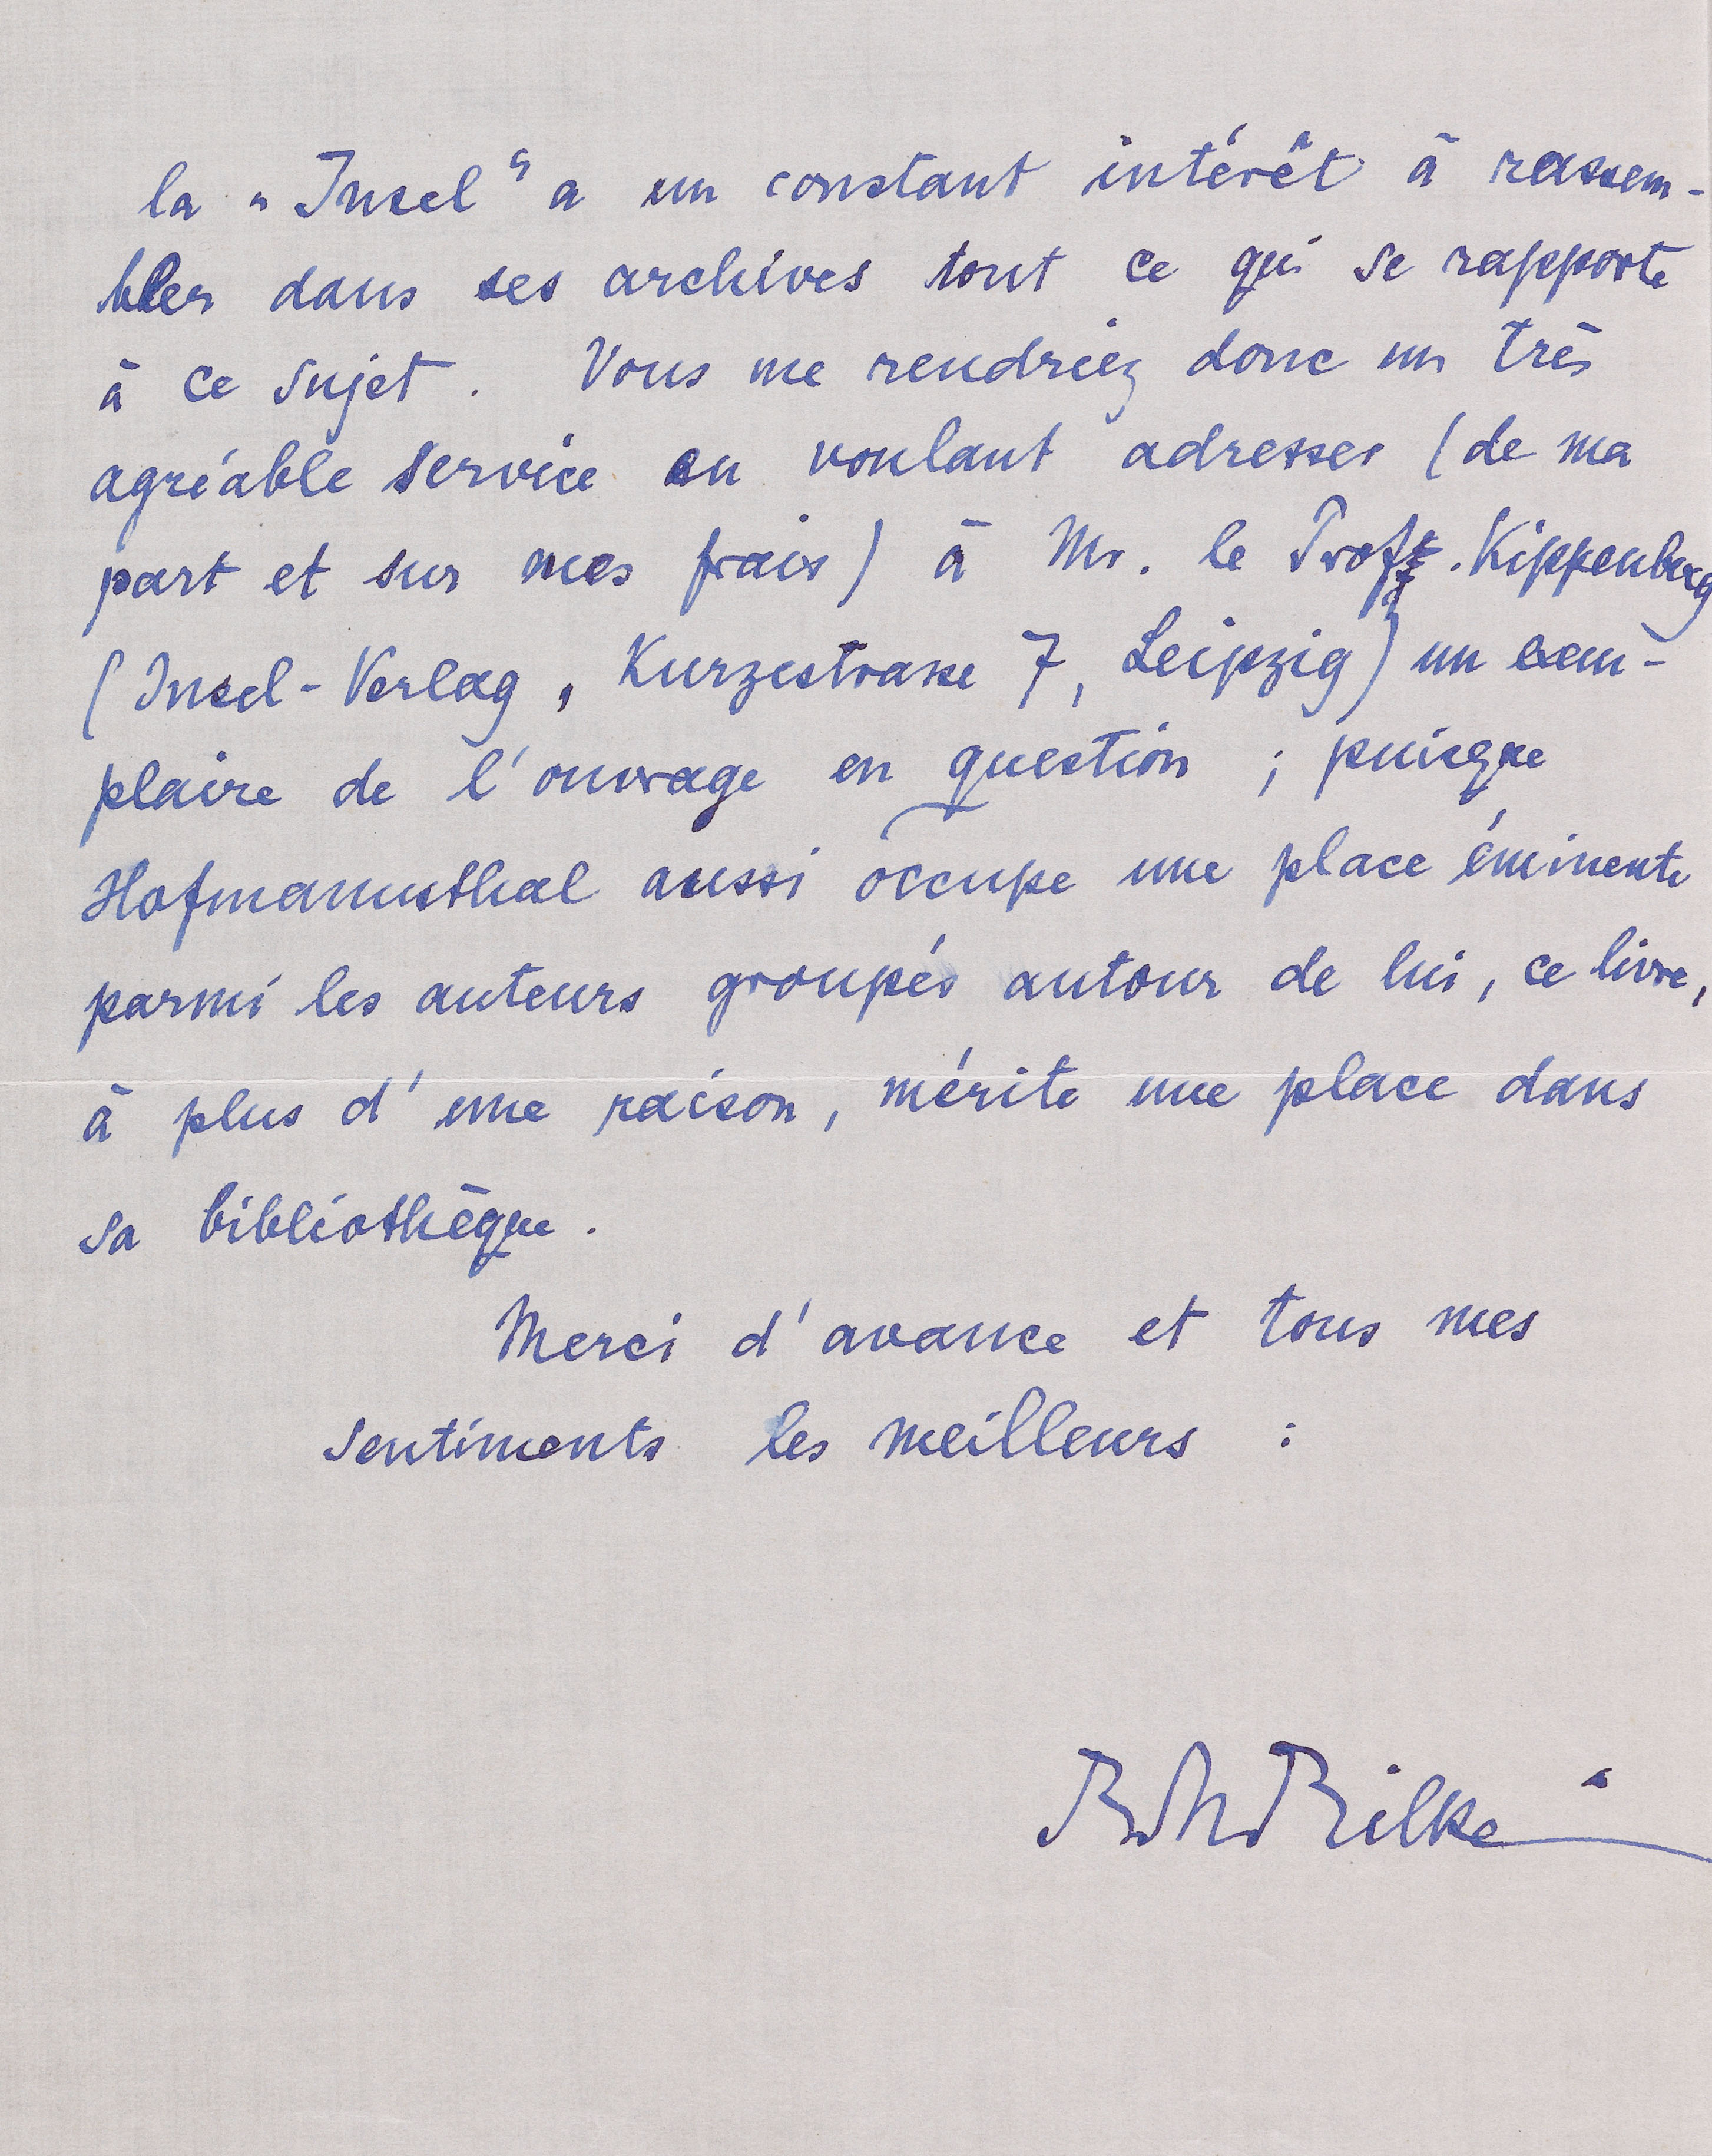 la „Insel“ a un constant intérêt à rassem-
bler dans ses archives tout ce qui se rapporte
à ce sujet. Vous me rendriez donc un très
agréable service en voulant adresser (de ma
part et sur mes frais) à Mr. le Prof. Kippenberg
(Insel-Verlag, Kurzestrasse 7, Leipzig) un exem-
plaire de l'ouvrage en question ; puisque
Hofmannsthal aussi occupe une place éminente
parmi les auteurs groupés autour de lui, ce livre,
à plus d'une raison, mérite une place dans
sa bibliothèque.
Merci d'avance et tous mes
sentiments les meilleurs :
RMRilke